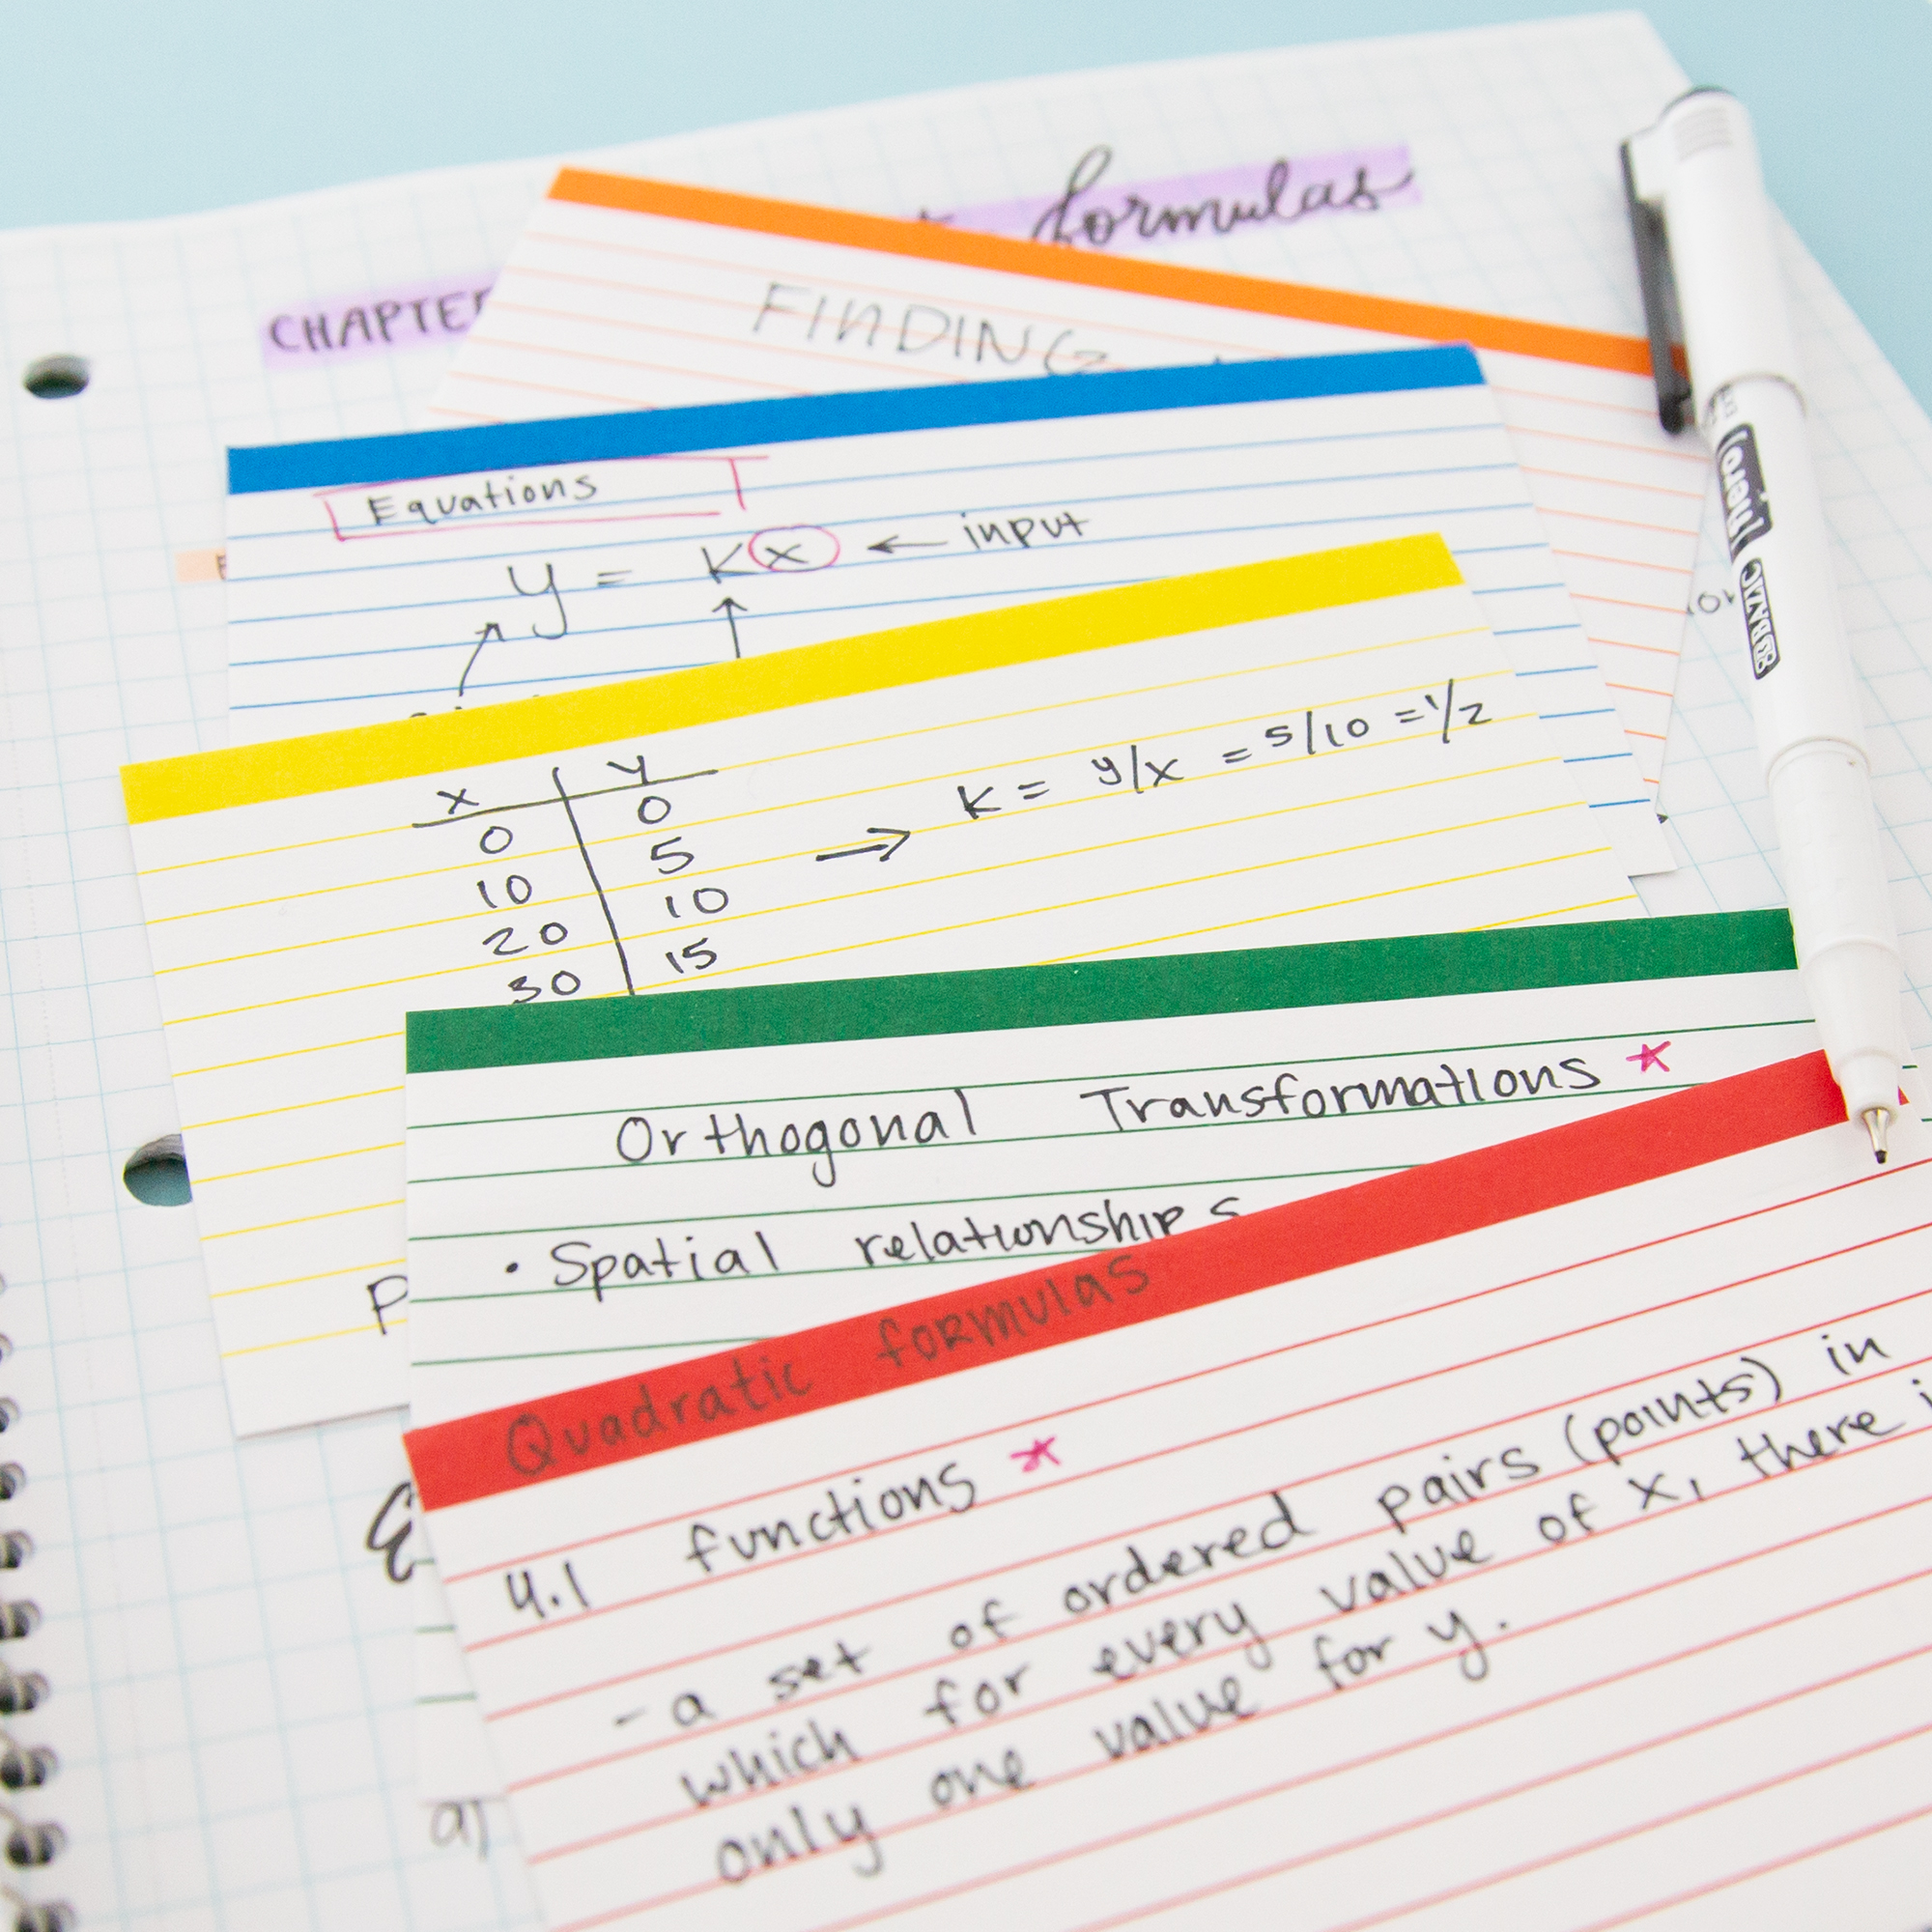 formulas
CHAPTER
FINDING
Equations
y = kx ← input
x y
0 0
10 5
20 10
30 15
→ k = y/x = 5/10 = 1/2
Orthogonal Transformations *
• Spatial relationships
P
Quadratic formulas
4.1 functions *
- a set of ordered pairs (points) in
which for every value of x, there
only one value for y.
a)